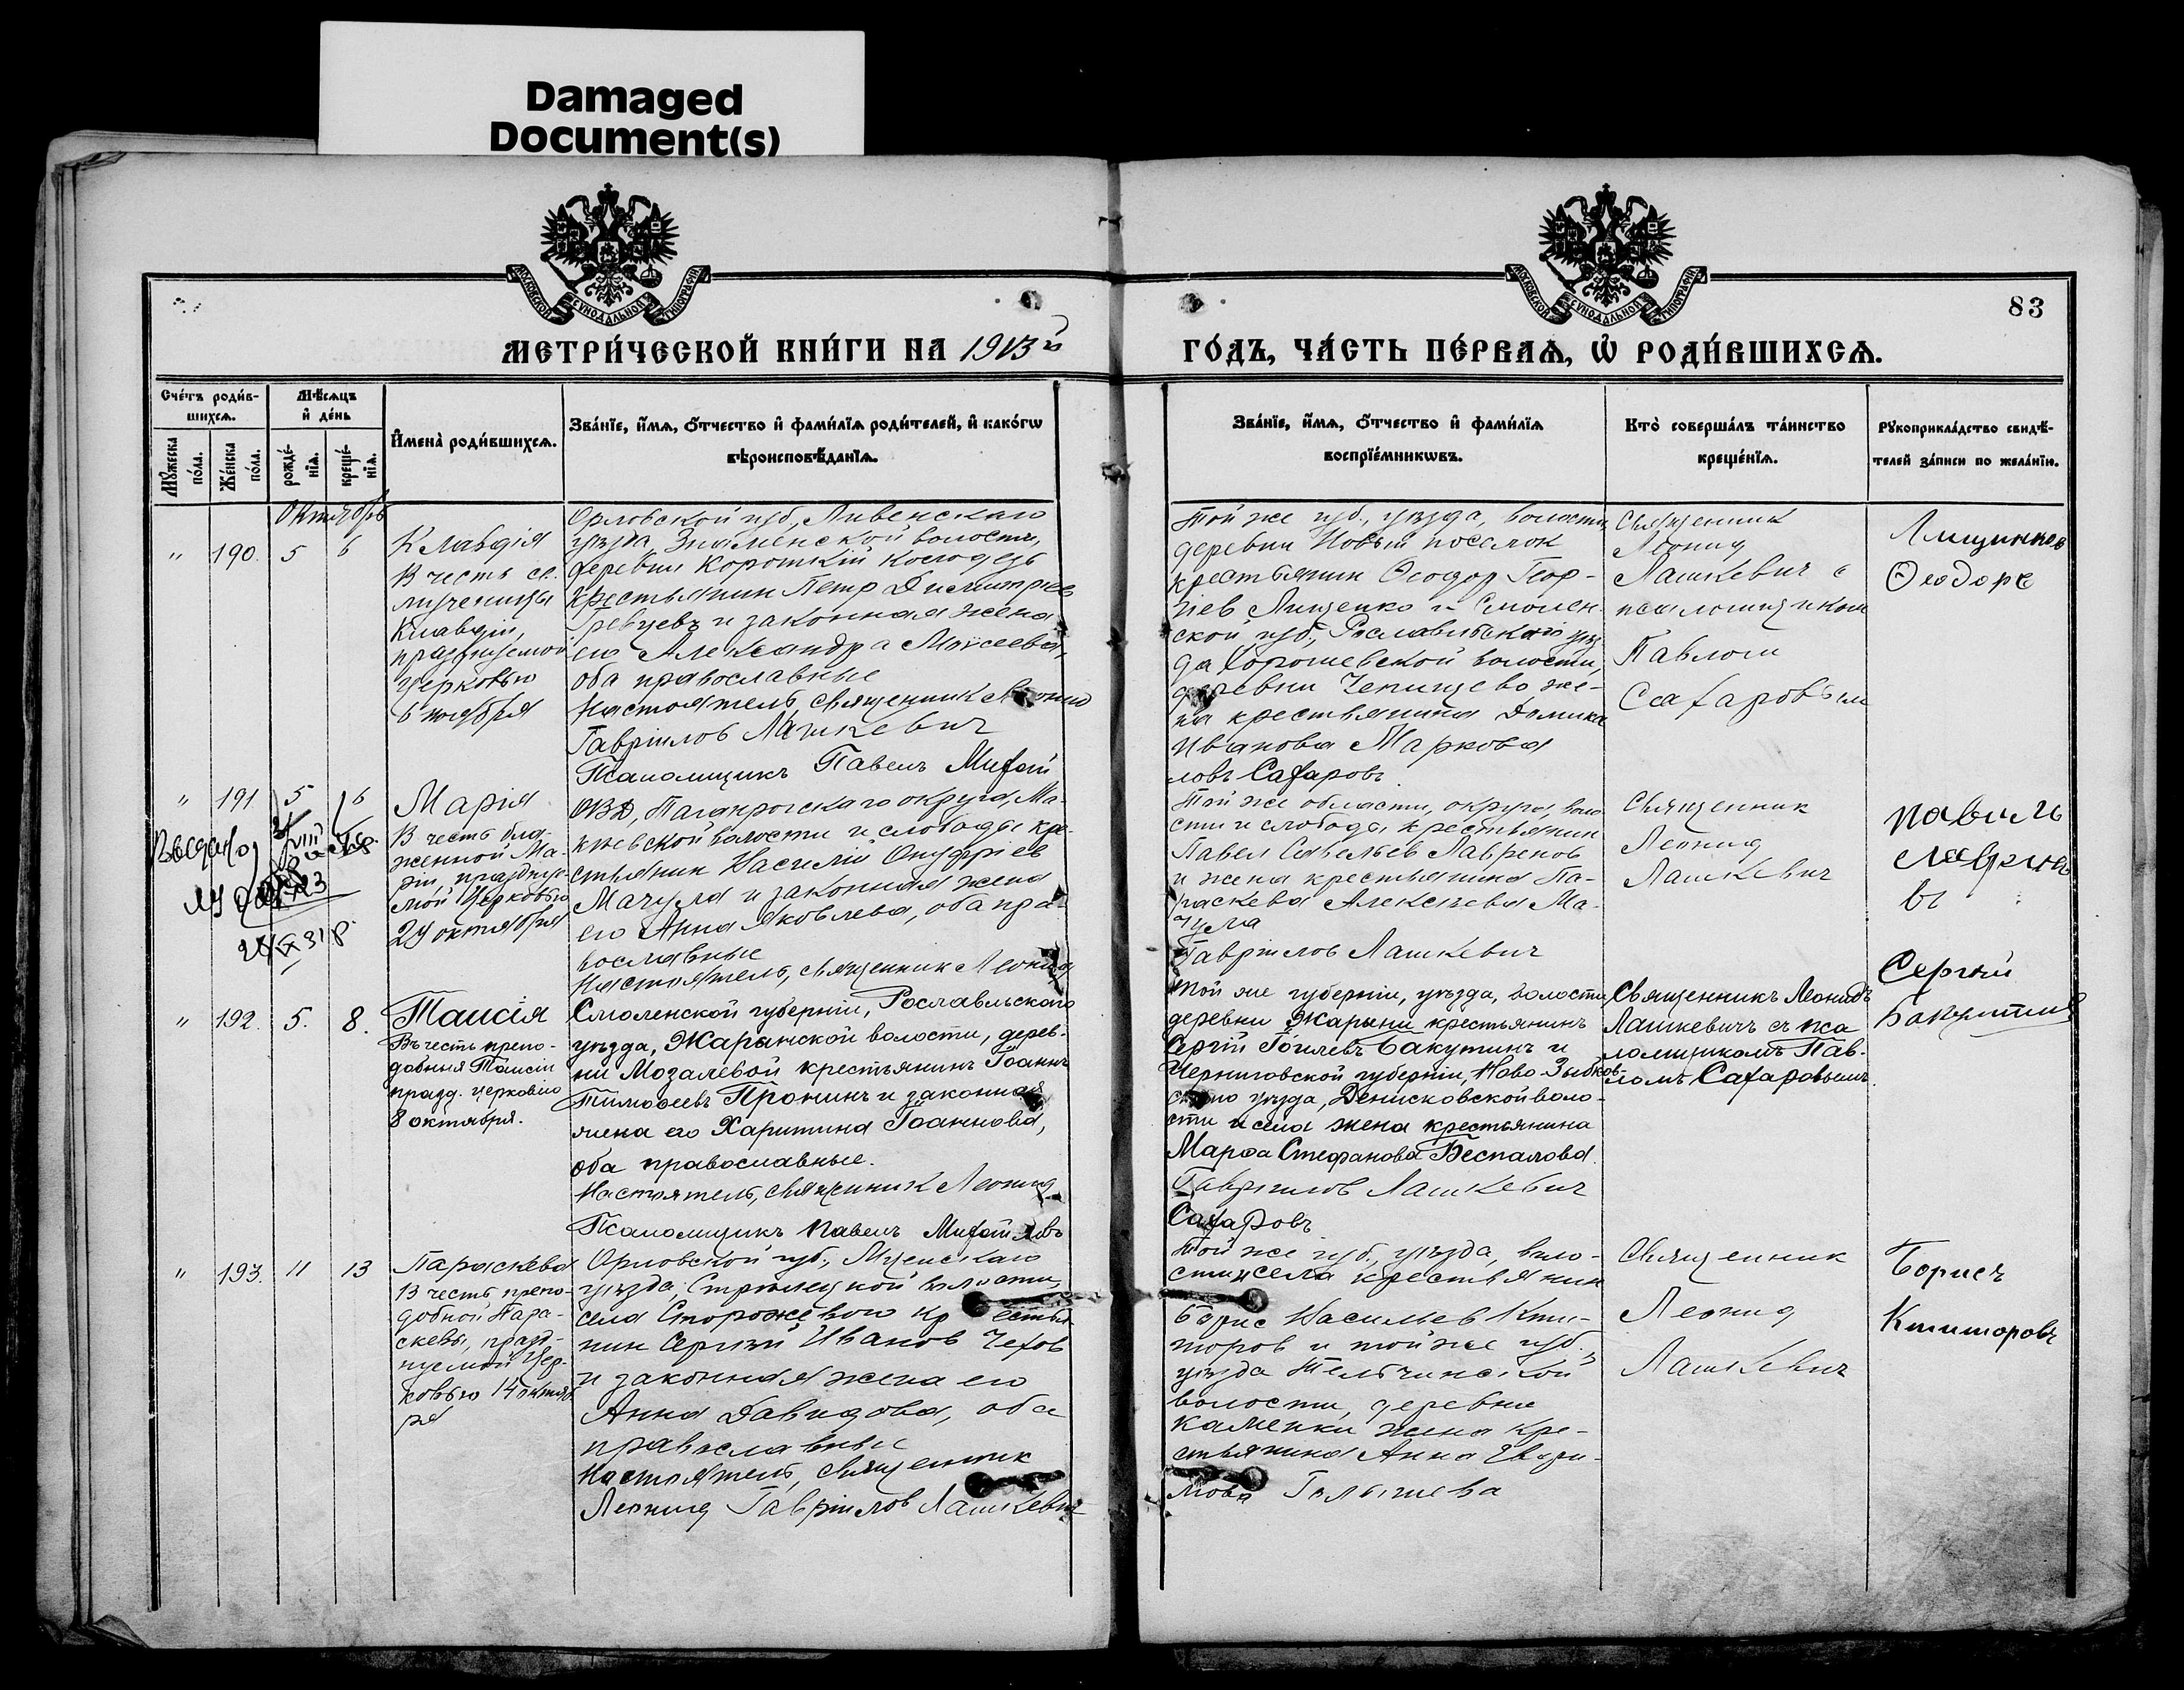 Damaged
Document(s)
МОСКОВСКОЙ СѴНОДАЛЬНОЙ ТИПОГРАФІИ
МОСКОВСКОЙ СѴНОДАЛЬНОЙ ТИПОГРАФІИ
83
МЕТРИ́ЧЕСКОЙ КНИ́ГИ НА 1913й
ГО́ДЪ, ЧА́СТЬ ПЕ́РВАѦ, Ѡ҆ РОДИ́ВШИХСѦ.
Сче́тъ роди́в-
шихсѧ.
Мꙋ́жеска
по́ла.
Же́нска
по́ла.
Мѣ́сѧцъ
и҆ де́нь
рожде́-
нїѧ.
креще́-
нїѧ.
И҆мена̀ роди́вшихсѧ.
Зва́нїе, и҆́мѧ, ѻ҆́тчество и҆ фами́лїѧ роди́телей, и҆ како́гѡ
вѣроисповѣ́данїѧ.
Зва́нїе, и҆́мѧ, ѻ҆́тчество и҆ фами́лїѧ
воспрїе́мникѡвъ.
Кто̀ соверша́лъ та́инство
креще́нїѧ.
Рꙋкоприкла́дство свидѣ́-
телей за́писи по жела́нїю.
Октябрь
" 190. 5 6
Клавдія
В честь св.
мученицы
Клавдіи,
празднуемой
Церковью
6 ноября
Орловской губ., Ливенскаго
уѣзда Знаменской волости,
деревни Короткій Колодезь
крестьянин Петр Димитріев
и законная жена
его Александра Моисеева,
оба православные
Настоятель, священник Леонид
Гавріилов Лашкевич
Псаломщикъ Павелъ Михай
Той же губ., уѣзда, волости,
деревни Новый поселок
крестьянин Ѳеодор Геор-
гіев Лищенко и Смолен-
ской губ., Рославльскаго уѣз
да Хорошевской волости,
деревни Чепищево же-
на крестьянина Домника
Иванова Маркова
ловъ Сахаровъ.
Священник
Леонид
Лашкевич с
псаломщиком
Павлом
Сахаровым
Лищинков
Ѳеодоръ
" 191. 5 6
Марія
В честь бла-
женной Ма-
ріи, праздну-
мой Церковью
29 октября
ОВД, Таганрогскаго округа, Ма-
кѣевской волости и слободы кре-
стьянин Василій Онуфріев
Мачула и законная жена
его Анна Яковлева, оба пра-
вославные
Настоятель, священник Леонид
Той же области, округа, воло
сти и слободы крестьянин
Павел Савельев Лавренов
и жена крестьянина Па-
раскева Алексѣева Ма-
чула
Гавріилов Лашкевич
Священник
Леонид
Лашкевич
павилъ
лаврино
въ
" 192. 5. 8.
Таисія
Въ честь препо-
добныя Таисіи
празд. церковію
8 октября.
Смоленской губерніи, Рославльского
уѣзда, Жарынской волости, дерев-
ни Мозалевой крестьянинъ Іоаннъ
Тимоѳеевъ Пронинъ и законная
жена его Харитина Іоаннова,
оба православные.
Настоятель, священник Леонид
Псаломщикъ Павелъ Михайловъ
Той же губерніи, уѣзда, волости
деревни Жарыни крестьянинъ
Сергій Іоилевъ Бакутинъ и
Черниговской губерніи, Ново-Зыбков-
скаго уѣзда, Денисковской воло-
сти и села жена крестьянина
Марѳа Стефанова Беспалова.
Гавріилов Лашкевич
Сахаровъ
Священникъ Леонидъ
Лашкевичъ съ пса
ломщикомъ Пав-
ломъ Сахаровымъ.
Сергѣй
" 193. 11 13
Параскева
В честь препо-
добной Пара-
скевы, празд-
нуемой Цер-
ковью 14 октяб-
ря
Орловской губ., Мценскаго
уѣзда, Стрѣлецкой волости,
села Сторожевого крестья
нин Сергѣй Иванов Чехов
и законная жена его
Анна Давидова, оба
православные
Настоятель, священник
Леонид Гавріилов Лашкевич
Той же губ., уѣзда, воло-
сти и села крестьянин
Борис Васильев Кти-
торов и той же губ.,
уѣзда Тельчинской
волости, деревни
Каменки жена кре-
стьянина Анна
Голышева
Священник
Леонид
Лашкевич
Борисъ
Ктиторовъ